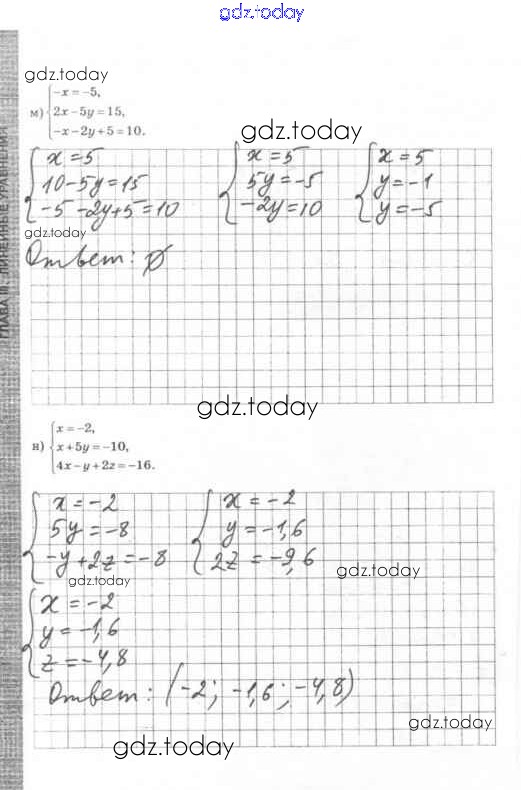 gdz.today
gdz.today
м) { -x = -5,
2x - 5y = 15,
-x - 2y + 5 = 10.
gdz.today
{ x = 5
10 - 5y = 15
-5 - 2y + 5 = 10
{ x = 5
5y = -5
-2y = 10
{ x = 5
y = -1
y = -5
gdz.today
Ответ: ∅
ГЛАВА III. ЛИНЕЙНЫЕ УРАВНЕНИЯ
gdz.today
н) { x = -2,
x + 5y = -10,
4x - y + 2z = -16.
{ x = -2
5y = -8
-y + 2z = -8
{ x = -2
y = -1,6
2z = -9,6
gdz.today
gdz.today
{ x = -2
y = -1,6
z = -4,8
Ответ: (-2; -1,6; -4,8)
gdz.today
gdz.today